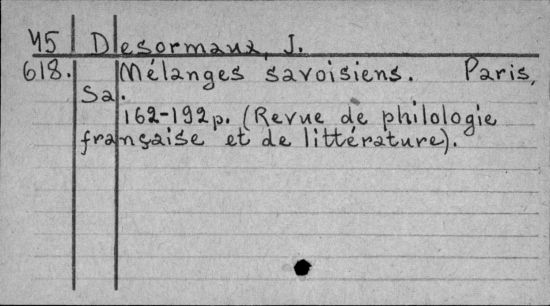 45 Desormaux, J.
618. Mélanges savoisiens. Paris,
Sa.
162-192p. (Revue de philologie
française et de littérature).